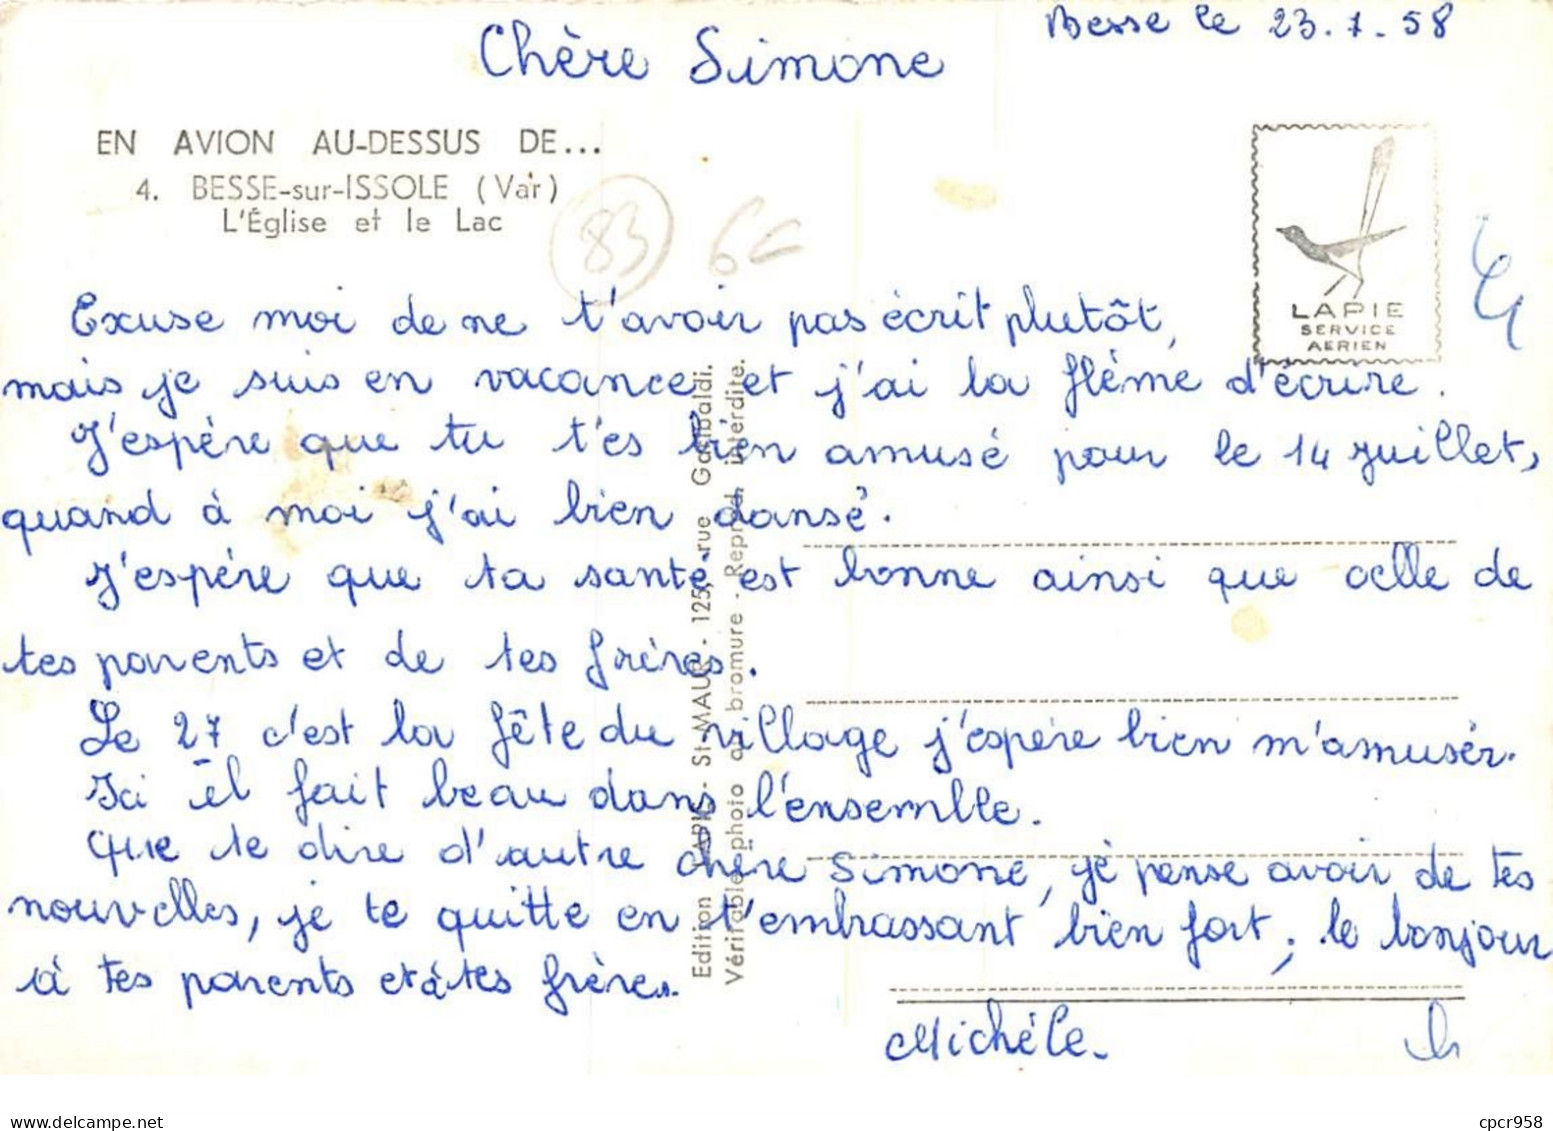 Besse le 23.7.58
Chère Simone
EN AVION AU-DESSUS DE...
4. BESSE-sur-ISSOLE (Var)
L'Église et le Lac
83
6€
LAPIE
SERVICE
AERIEN
Excuse moi de ne t'avoir pas écrit plutôt,
mais je suis en vacance et j'ai la flème d'écrire.
J'espére que tu t'es bien amusé pour le 14 juillet,
quand à moi j'ai bien dansé.
J'espére que ta santé est bonne ainsi que celle de
tes parents et de tes frères.
Le 27 c'est la fête du village j'espére bien m'amusér.
Ici il fait beau dans l'ensemble.
Que te dire d'autre chère Simone, je pense avoir de tes
nouvelles, je te quitte en t'embrassant bien fort, le bonjour
à tes parents et à tes frères.
Michéle.
Edition LAPIE - St-MAUR - 125, rue Garibaldi.
Véritable photo au bromure - Reprod. interdite.
cpcr958